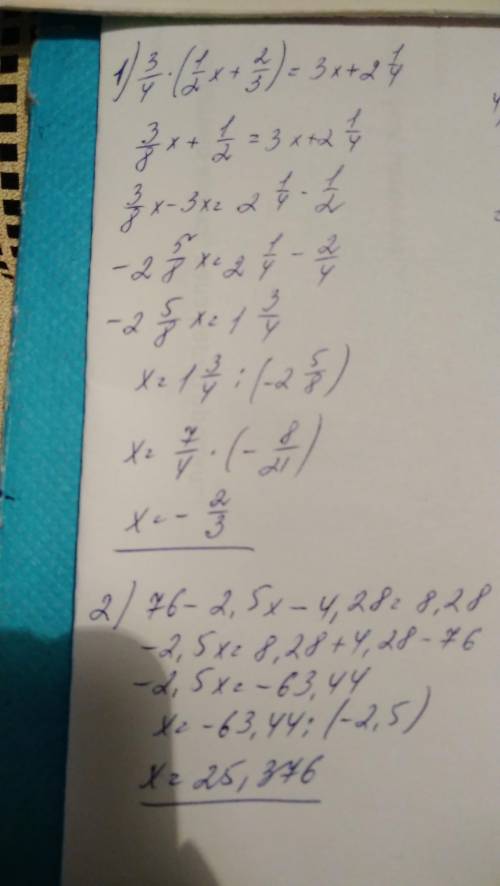 1) 3/4 · (1/2 x + 2/3) = 3x + 2 1/4
3/8 x + 1/2 = 3x + 2 1/4
3/8 x - 3x = 2 1/4 - 1/2
-2 5/8 x = 2 1/4 - 2/4
-2 5/8 x = 1 3/4
x = 1 3/4 : (-2 5/8)
x = 7/4 · (- 8/21)
x = - 2/3
2) 76 - 2,5x - 4,28 = 8,28
-2,5x = 8,28 + 4,28 - 76
-2,5x = -63,44
x = -63,44 : (-2,5)
x = 25,376